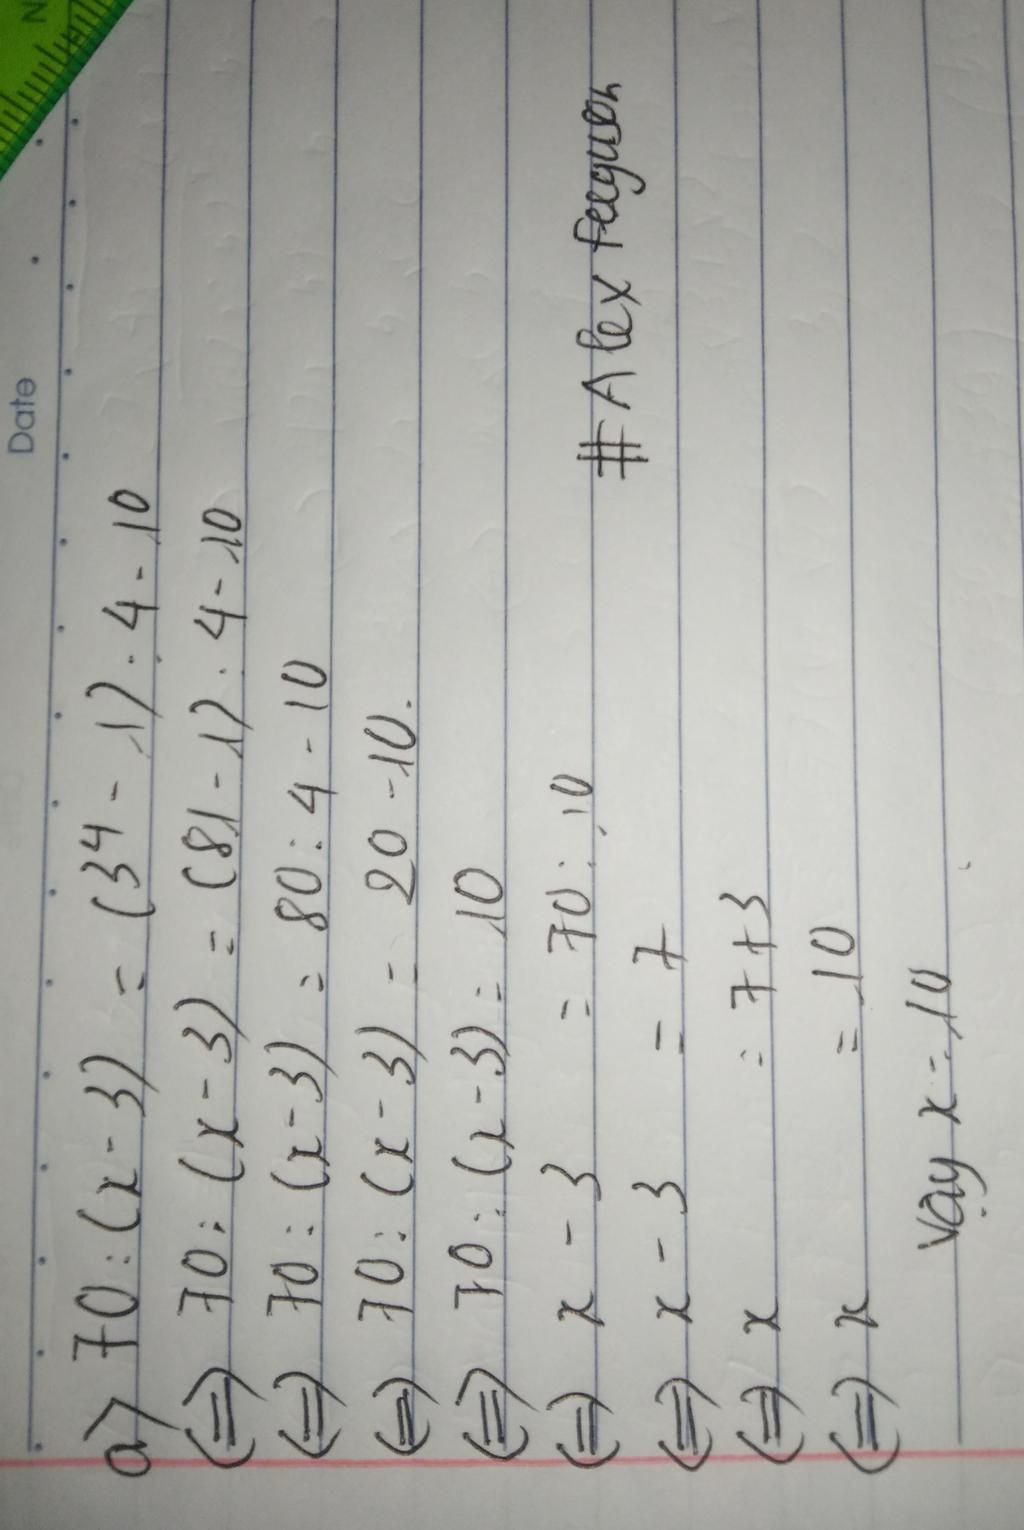 Date
a) 70 : (x - 3) = (3⁴ - 1) : 4 - 10
⟺ 70 : (x - 3) = (81 - 1) : 4 - 10
⟺ 70 : (x - 3) = 80 : 4 - 10
⟺ 70 : (x - 3) = 20 - 10.
⟺ 70 : (x - 3) = 10
⟺ x - 3 = 70 : 10
⟺ x - 3 = 7
⟺ x = 7 + 3
⟺ x = 10
Vậy x = 10
# Alex